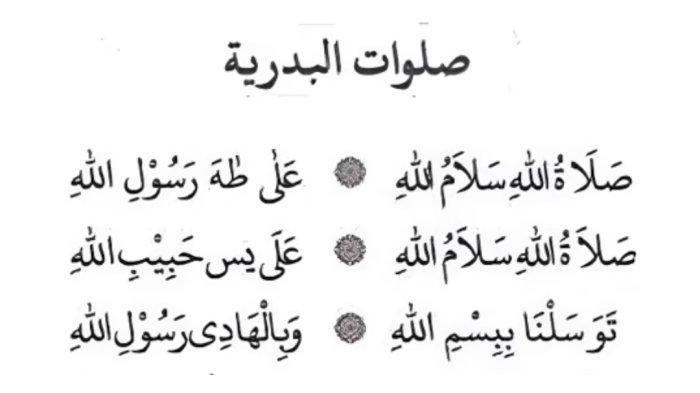 صلوات البدرية
صَلَا ةُ اللهِ سَلَامُ اللهِ ۞ عَلَى طٰهَ رَسُوْلِ اللهِ
صَلَا ةُ اللهِ سَلَامُ اللهِ ۞ عَلَى يس حَبِيْبِ اللهِ
تَوَ سَلْنَا بِبِسْمِ اللهِ ۞ وَبِالْهَادِى رَسُوْلِ اللهِ